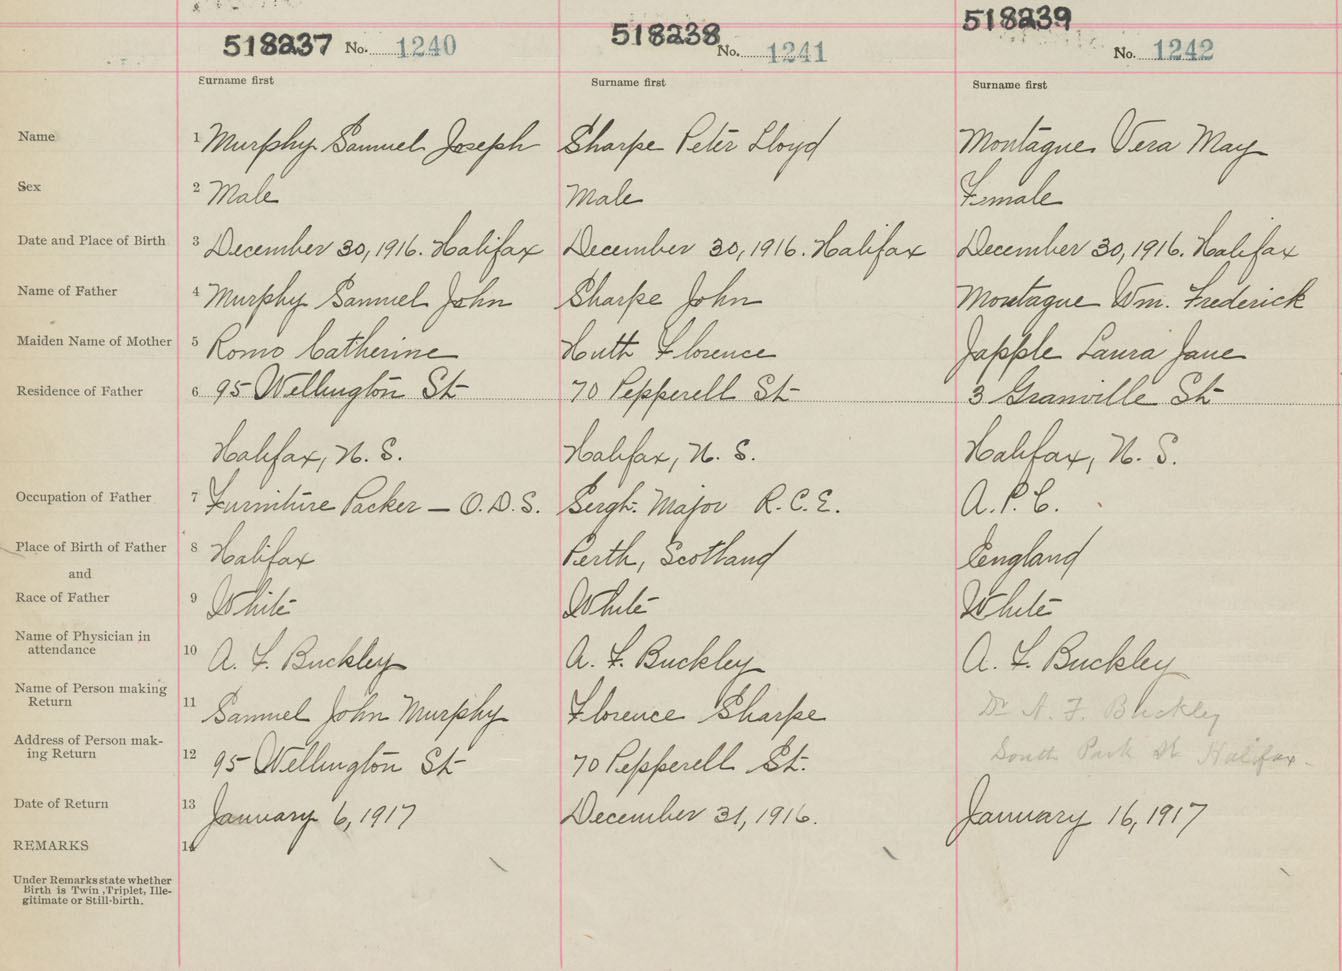 518237 No. 1240 518238 No. 1241 518239 No. 1242
Surname first Surname first Surname first
Name 1 Murphy Samuel Joseph Sharpe Peter Lloyd Montague Vera May
Sex 2 Male Male Female
Date and Place of Birth 3 December 30, 1916. Halifax December 30, 1916. Halifax December 30, 1916. Halifax
Name of Father 4 Murphy Samuel John Sharpe John Montague Wm. Frederick
Maiden Name of Mother 5 Romo Catherine Huth Florence Japple Laura Jane
Residence of Father 6 95 Wellington St 70 Pepperell St 3 Granville St
Halifax, N. S. Halifax, N. S. Halifax, N. S.
Occupation of Father 7 Furniture Packer — O.D.S. Sergt. Major R.C.E. A.P.C.
Place of Birth of Father 8 Halifax Perth, Scotland England
and
Race of Father 9 White White White
Name of Physician in
attendance 10 A. F. Buckley A. F. Buckley A. F. Buckley
Name of Person making
Return 11 Samuel John Murphy Florence Sharpe Dr A. F. Buckley
Address of Person mak-
ing Return 12 95 Wellington St 70 Pepperell St. South Park St Halifax
Date of Return 13 January 6, 1917 December 31, 1916. January 16, 1917
REMARKS 14
Under Remarks state whether
Birth is Twin, Triplet, Ille-
gitimate or Still-birth.